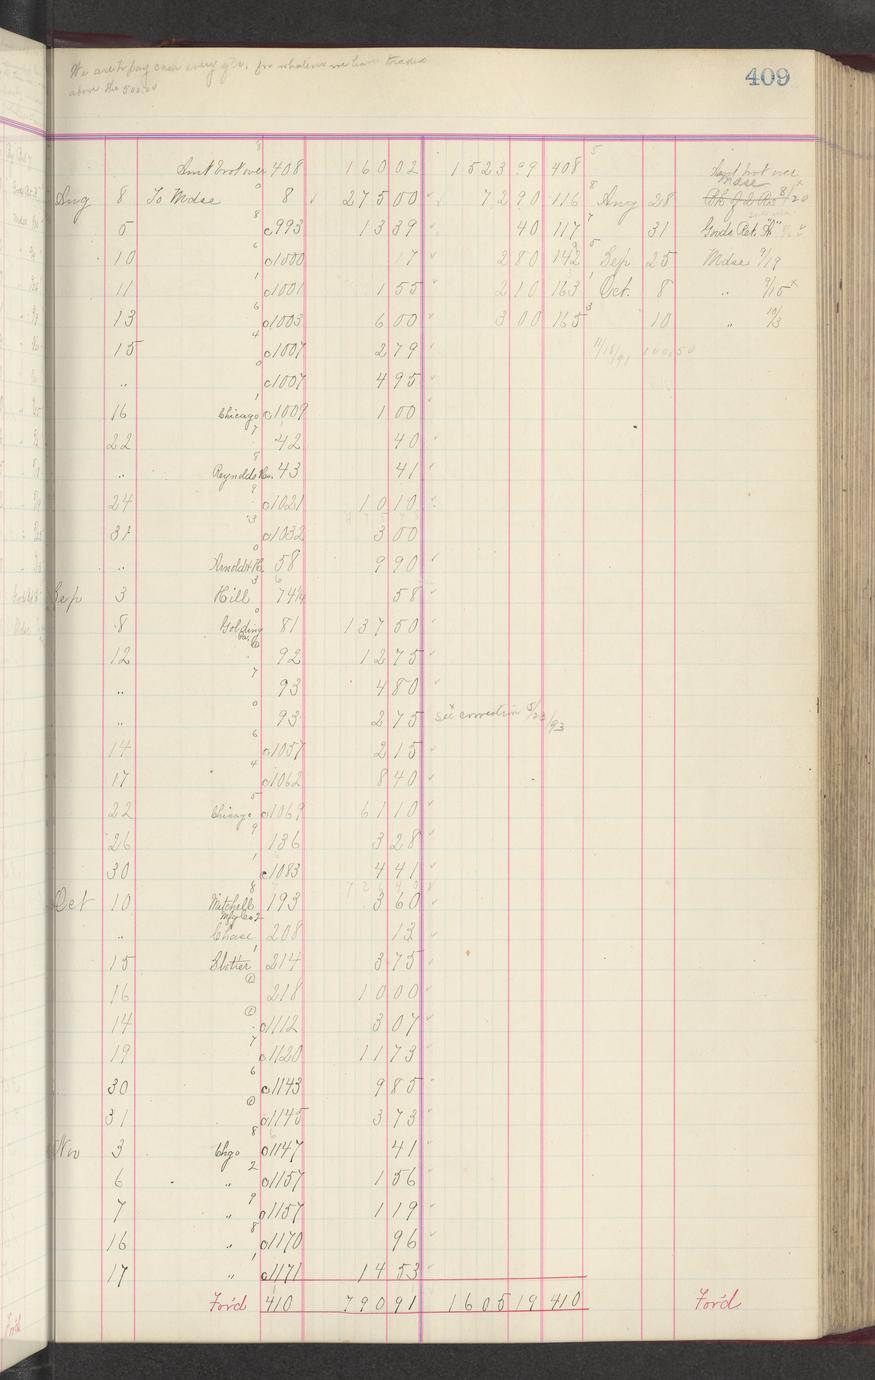 We are to pay cash every qtr. for whatever we have traded
above the 500.00
409
Amt brot over 408 160 02 1523 99 408 Amt brot over
Aug 8 To Mdse 8 275 00 72 90 116 Aug 28 Mdse 8/20
5 c993 13 39 40 117 31 Goods Ret. "A"
10 c1000 17 2 80 142 Sep 25 Mdse 9/19
11 c1001 1 55 2 10 163 Oct. 8 " 9/15
13 c1003 6 00 3 00 165 10 " 10/3
15 c1007 2 79 11/18/91 100.50
" c1007 4 95
16 Chicago c1009 1 00
22 42 40
" Reynolds 43 41
24 c1021 10 10
31 c1032 3 00
" Arnold 58 9 90
Sep 3 Hill 74¼ 58
8 Golding 81 137 50
12 92 12 75
" 93 4 80
" 93 2 75 See correction 5/23/93
14 c1057 2 15
17 c1062 8 40
22 Chicago c1069 61 10
26 136 3 28
30 c1083 4 41
Oct 10 Mitchell Mfg Co 193 3 60
" Chase 208 13
15 Blotter 214 3 75
16 218 10 00
14 c1112 3 07
19 c1120 11 73
30 c1143 9 85
31 c1145 3 73
Nov 3 Chgo c1147 41
6 " c1157 1 56
7 " c1157 1 19
16 " c1170 96
17 " c1171 14 53
For'd 410 790 91 1605 19 410 For'd